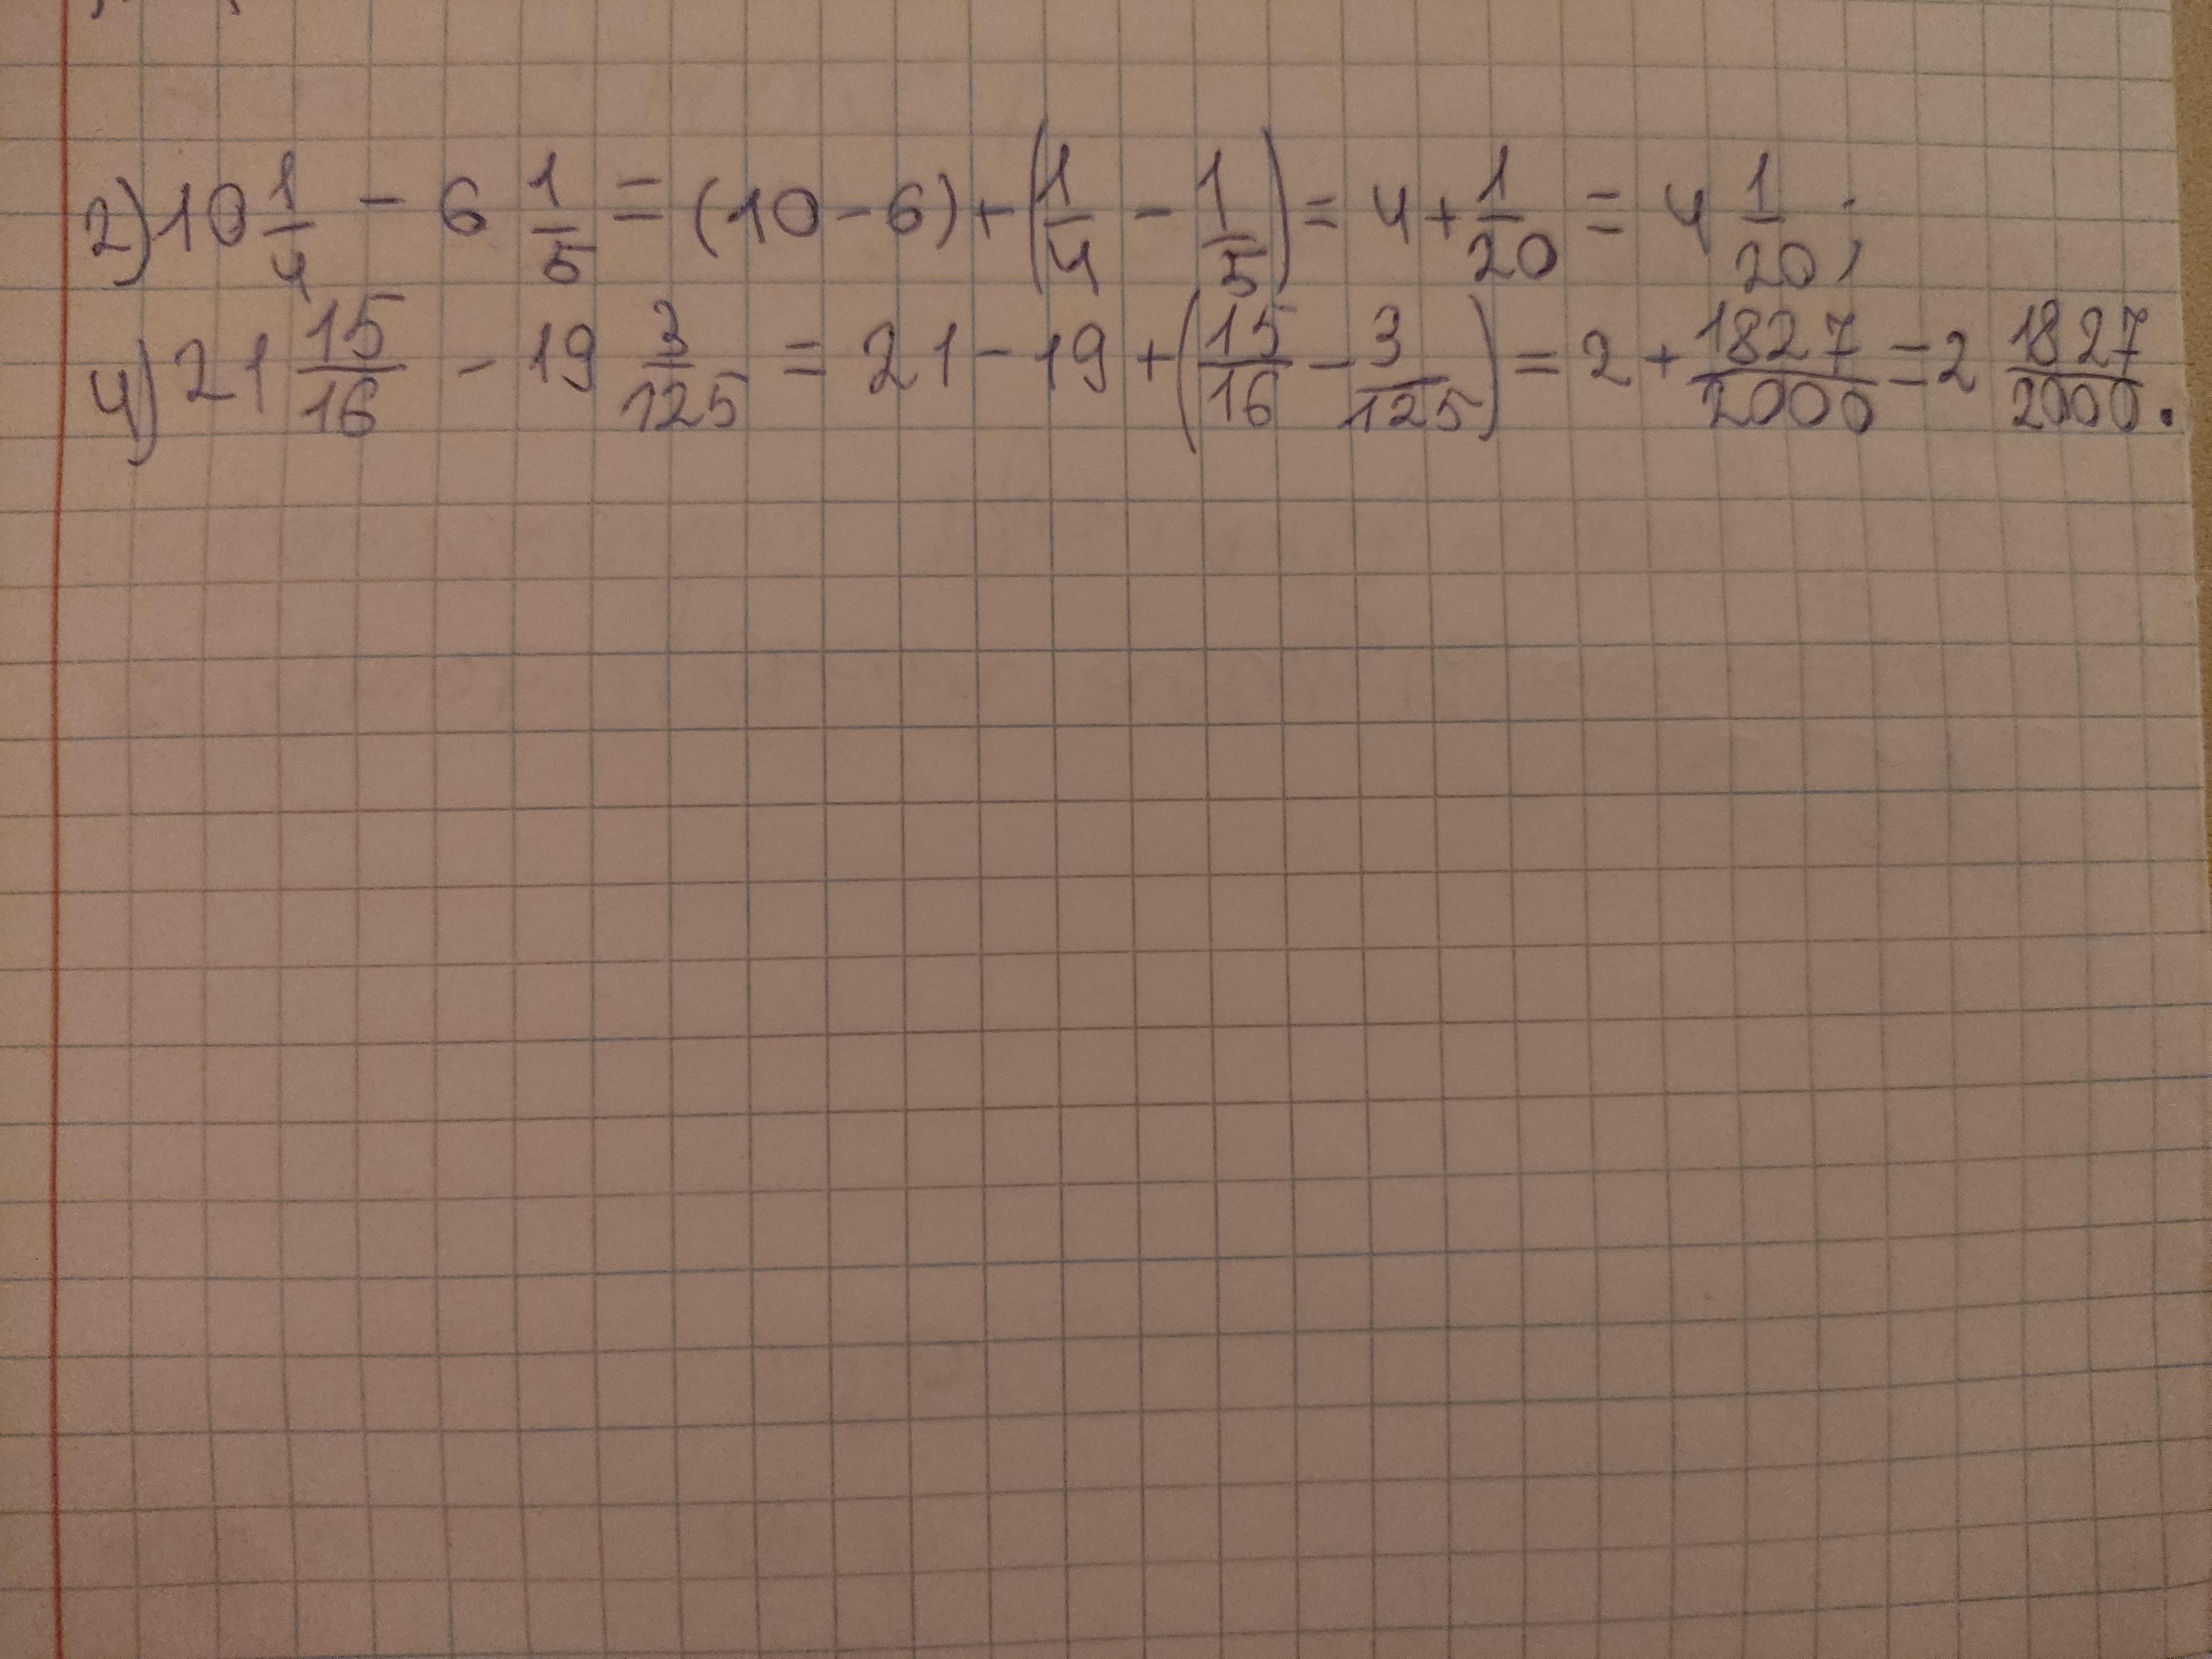 2) 10 1/4 - 6 1/5 = (10 - 6) + (1/4 - 1/5) = 4 + 1/20 = 4 1/20;
4) 21 15/16 - 19 3/125 = 21 - 19 + (15/16 - 3/125) = 2 + 1827/2000 = 2 1827/2000.